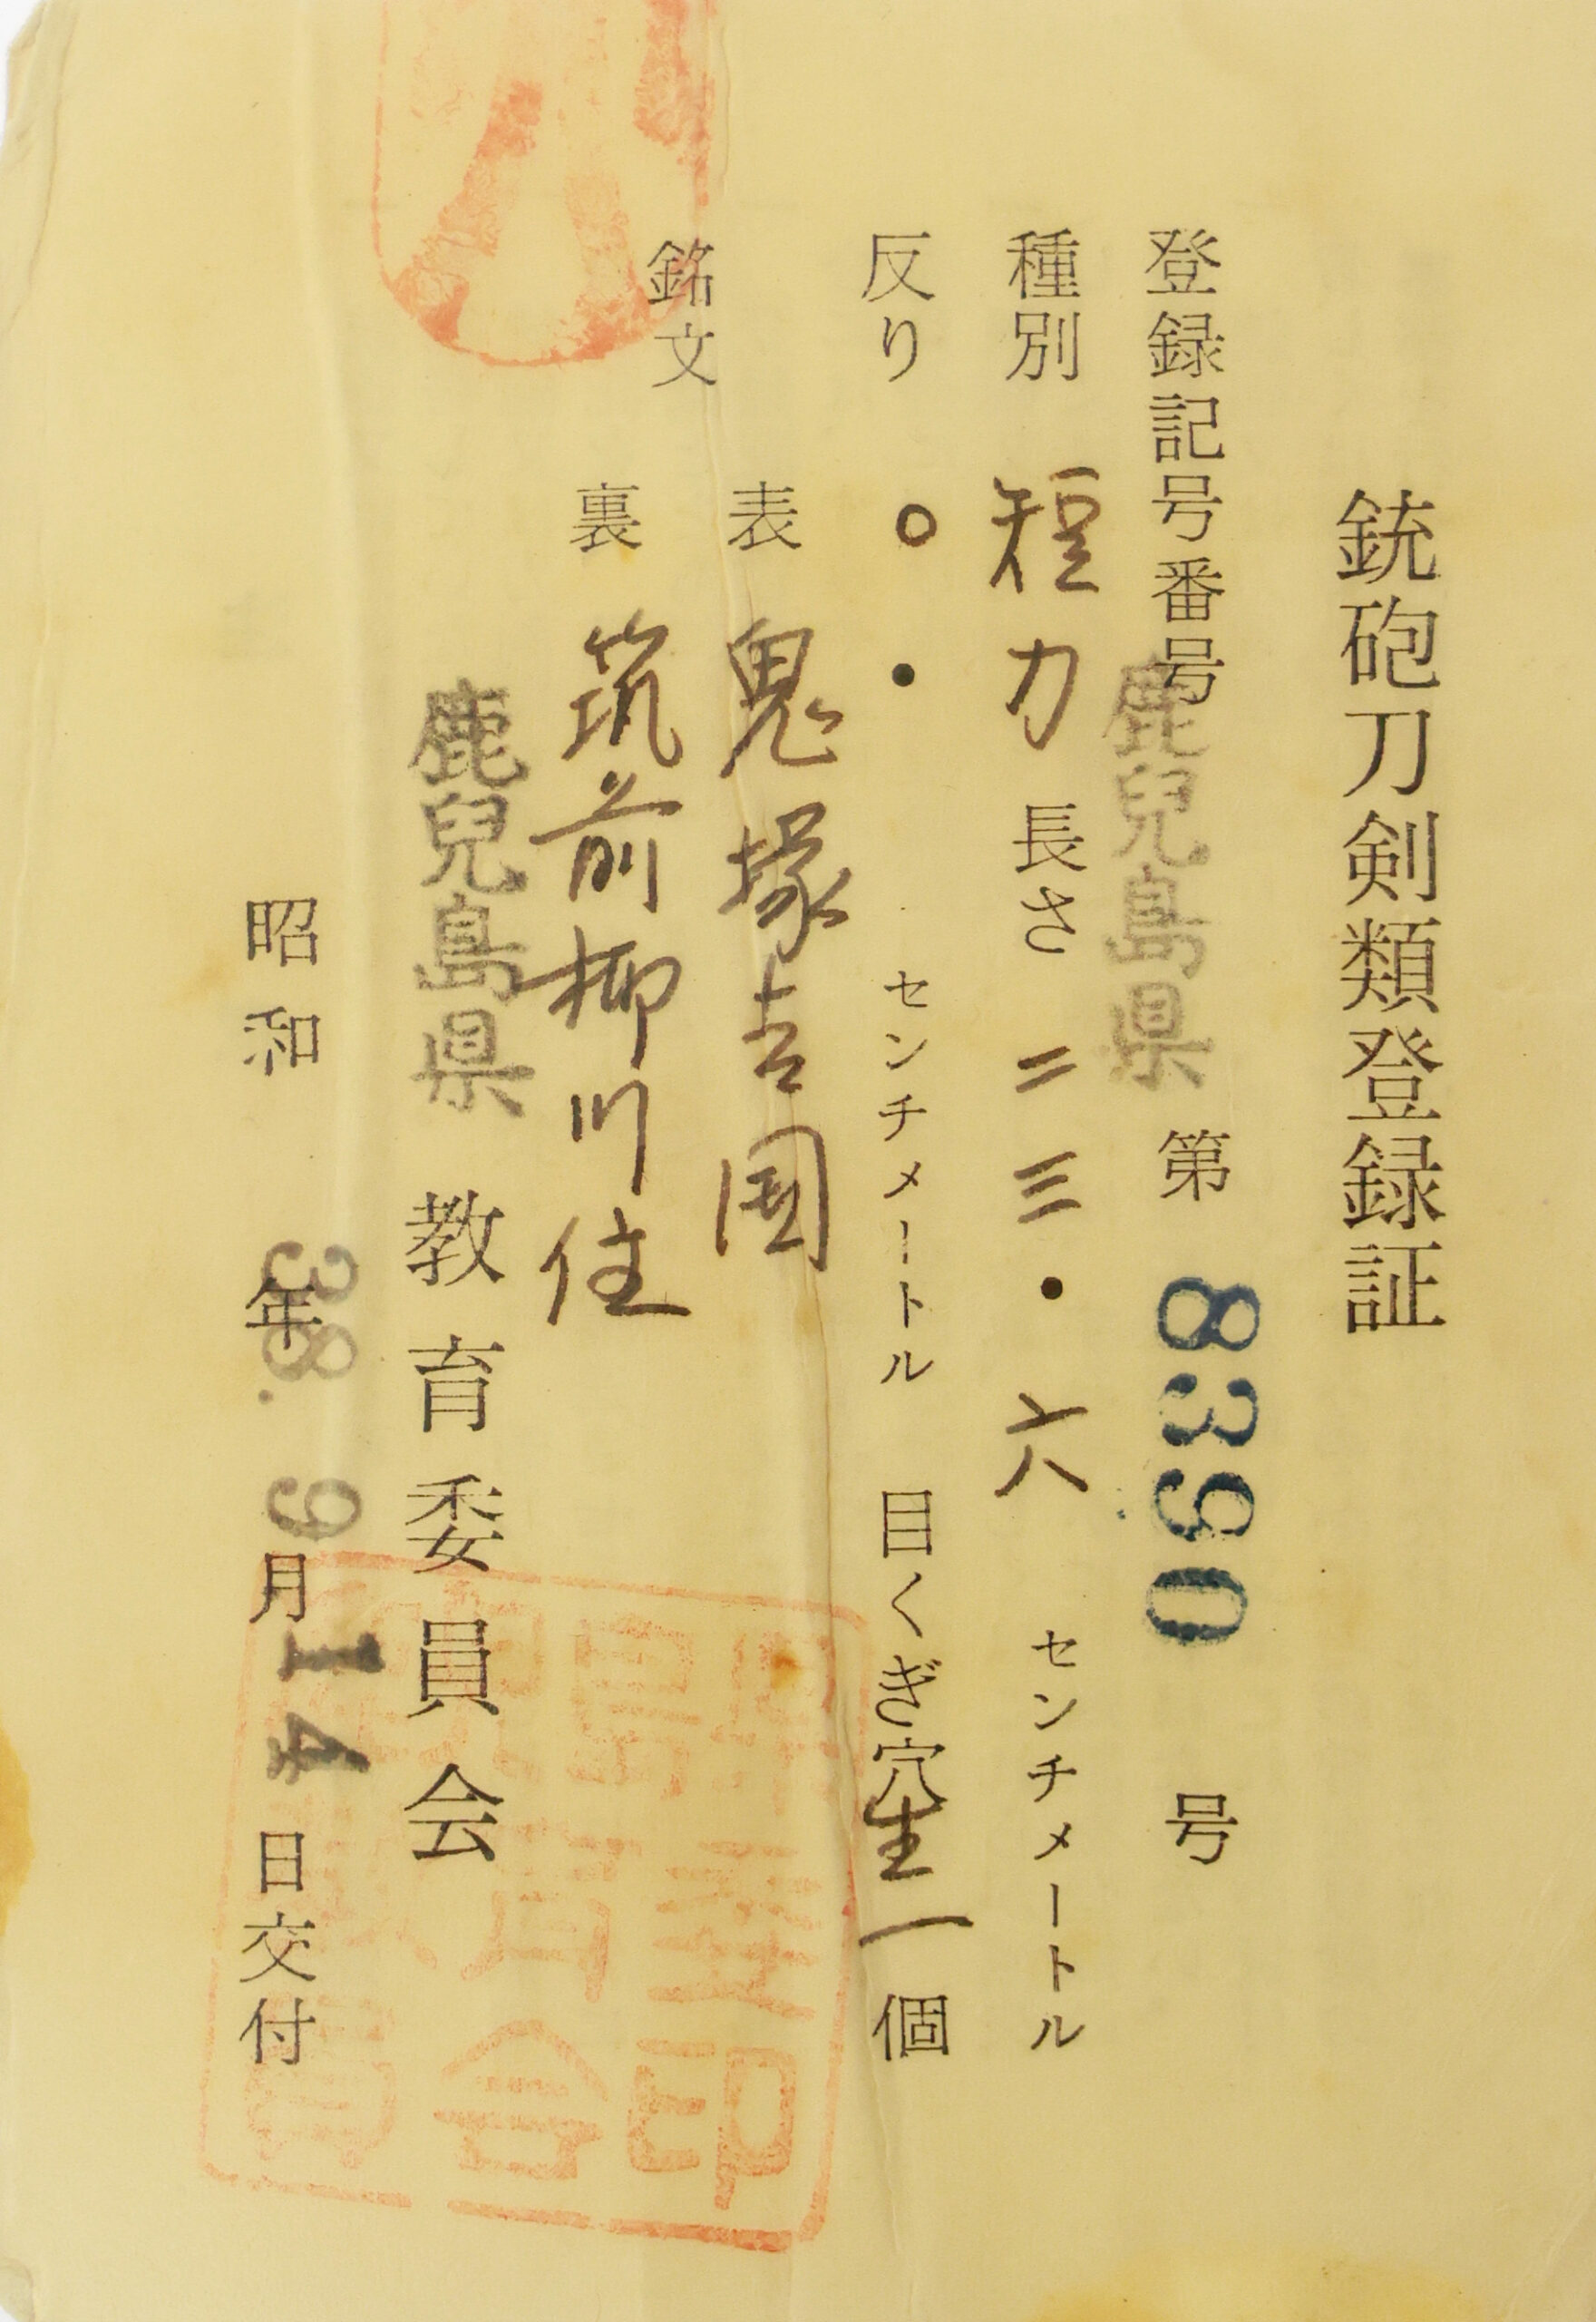 銃砲刀剣類登録証
登録記号番号 鹿児島県 第 8390 号
種別 短刀 長さ 二三・六 センチメートル
反り 〇・ センチメートル 目くぎ穴 生一 個
銘文
表 鬼塚吉国
裏 筑前柳川住
鹿児島県 教育委員会
昭和 38. 年 9 月 14 日交付